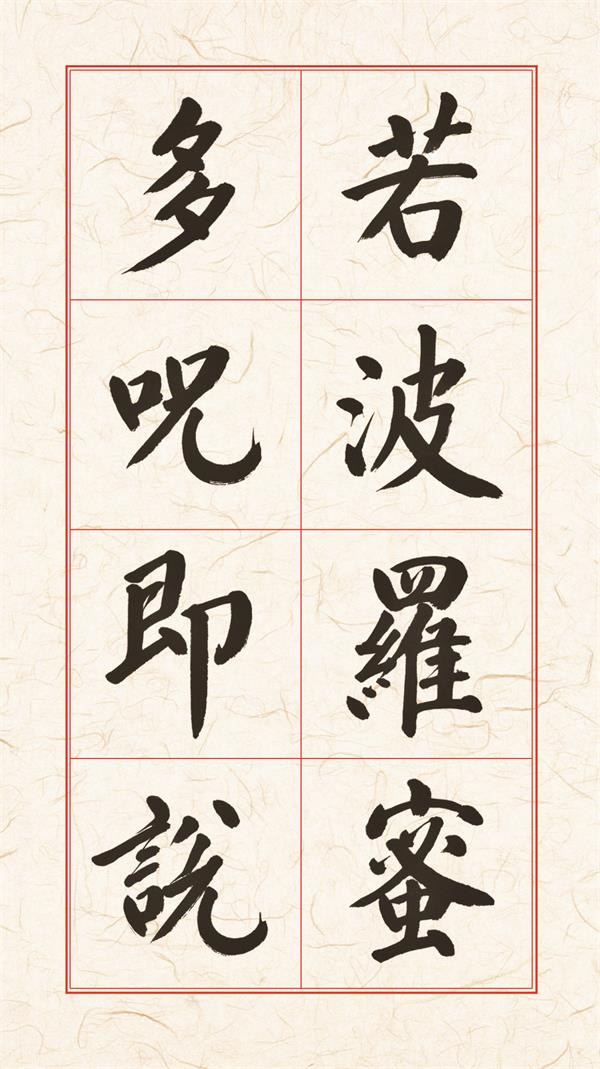 若波羅蜜
多呪即說